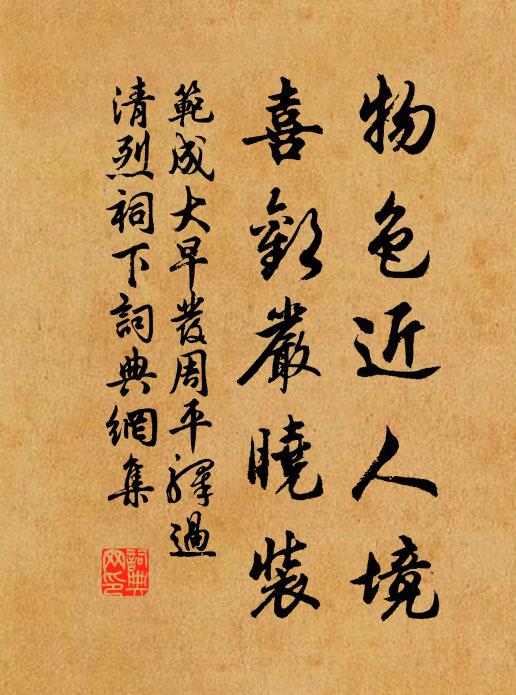 物色近人境
喜歡嚴曉裝
範成大早發周平驛過
清烈祠下詞典網集
詞典
网印